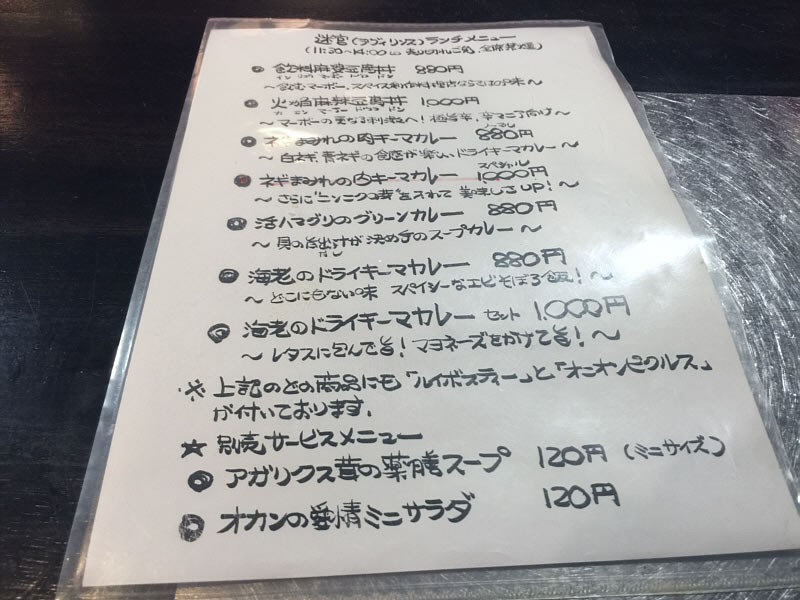 迷宮(ラヴィリンス)ランチメニュー
(11:30~14:00 売り切れご免、全席禁煙)
◎ 飲料麻婆豆腐丼 880円
インリョウ マーボー ドウフ ドン
~飲むマーボー、スパイス創作料理店ならではの味~
◎ 火焔麻辣豆腐丼 1,000円
カエン マーラー ドウフ ドン
~マーボーの更なる刺激へ!極旨辛、辛マニア向け~
ノーマル
◎ ネギまみれの肉キーマカレー 880円
~白ネギ、青ネギの食感が楽しいドライキーマカレー~
スペシャル
◎ ネギまみれの肉キーマカレー 1,000円
~さらにニンニクの芽を入れて美味しさUP!~
◎ 活ハマグリのグリーンカレー 880円
~貝の旨出汁が決め手のスープカレー~
ダシ
◎ 海老のドライキーマカレー 880円
~どこにもない味 スパイシーなエビそぼろ飯!~
◎ 海老のドライキーマカレー セット 1,000円
~レタスに包んで旨!マヨネーズをかけて旨!~
※ 上記のどの商品にも「ルイボスティー」と「オニオンピクルス」
が付いております。
★ 別売サービスメニュー
◎ アガリクス茸の薬膳スープ 120円(ミニサイズ)
◎ オカンの愛情ミニサラダ 120円